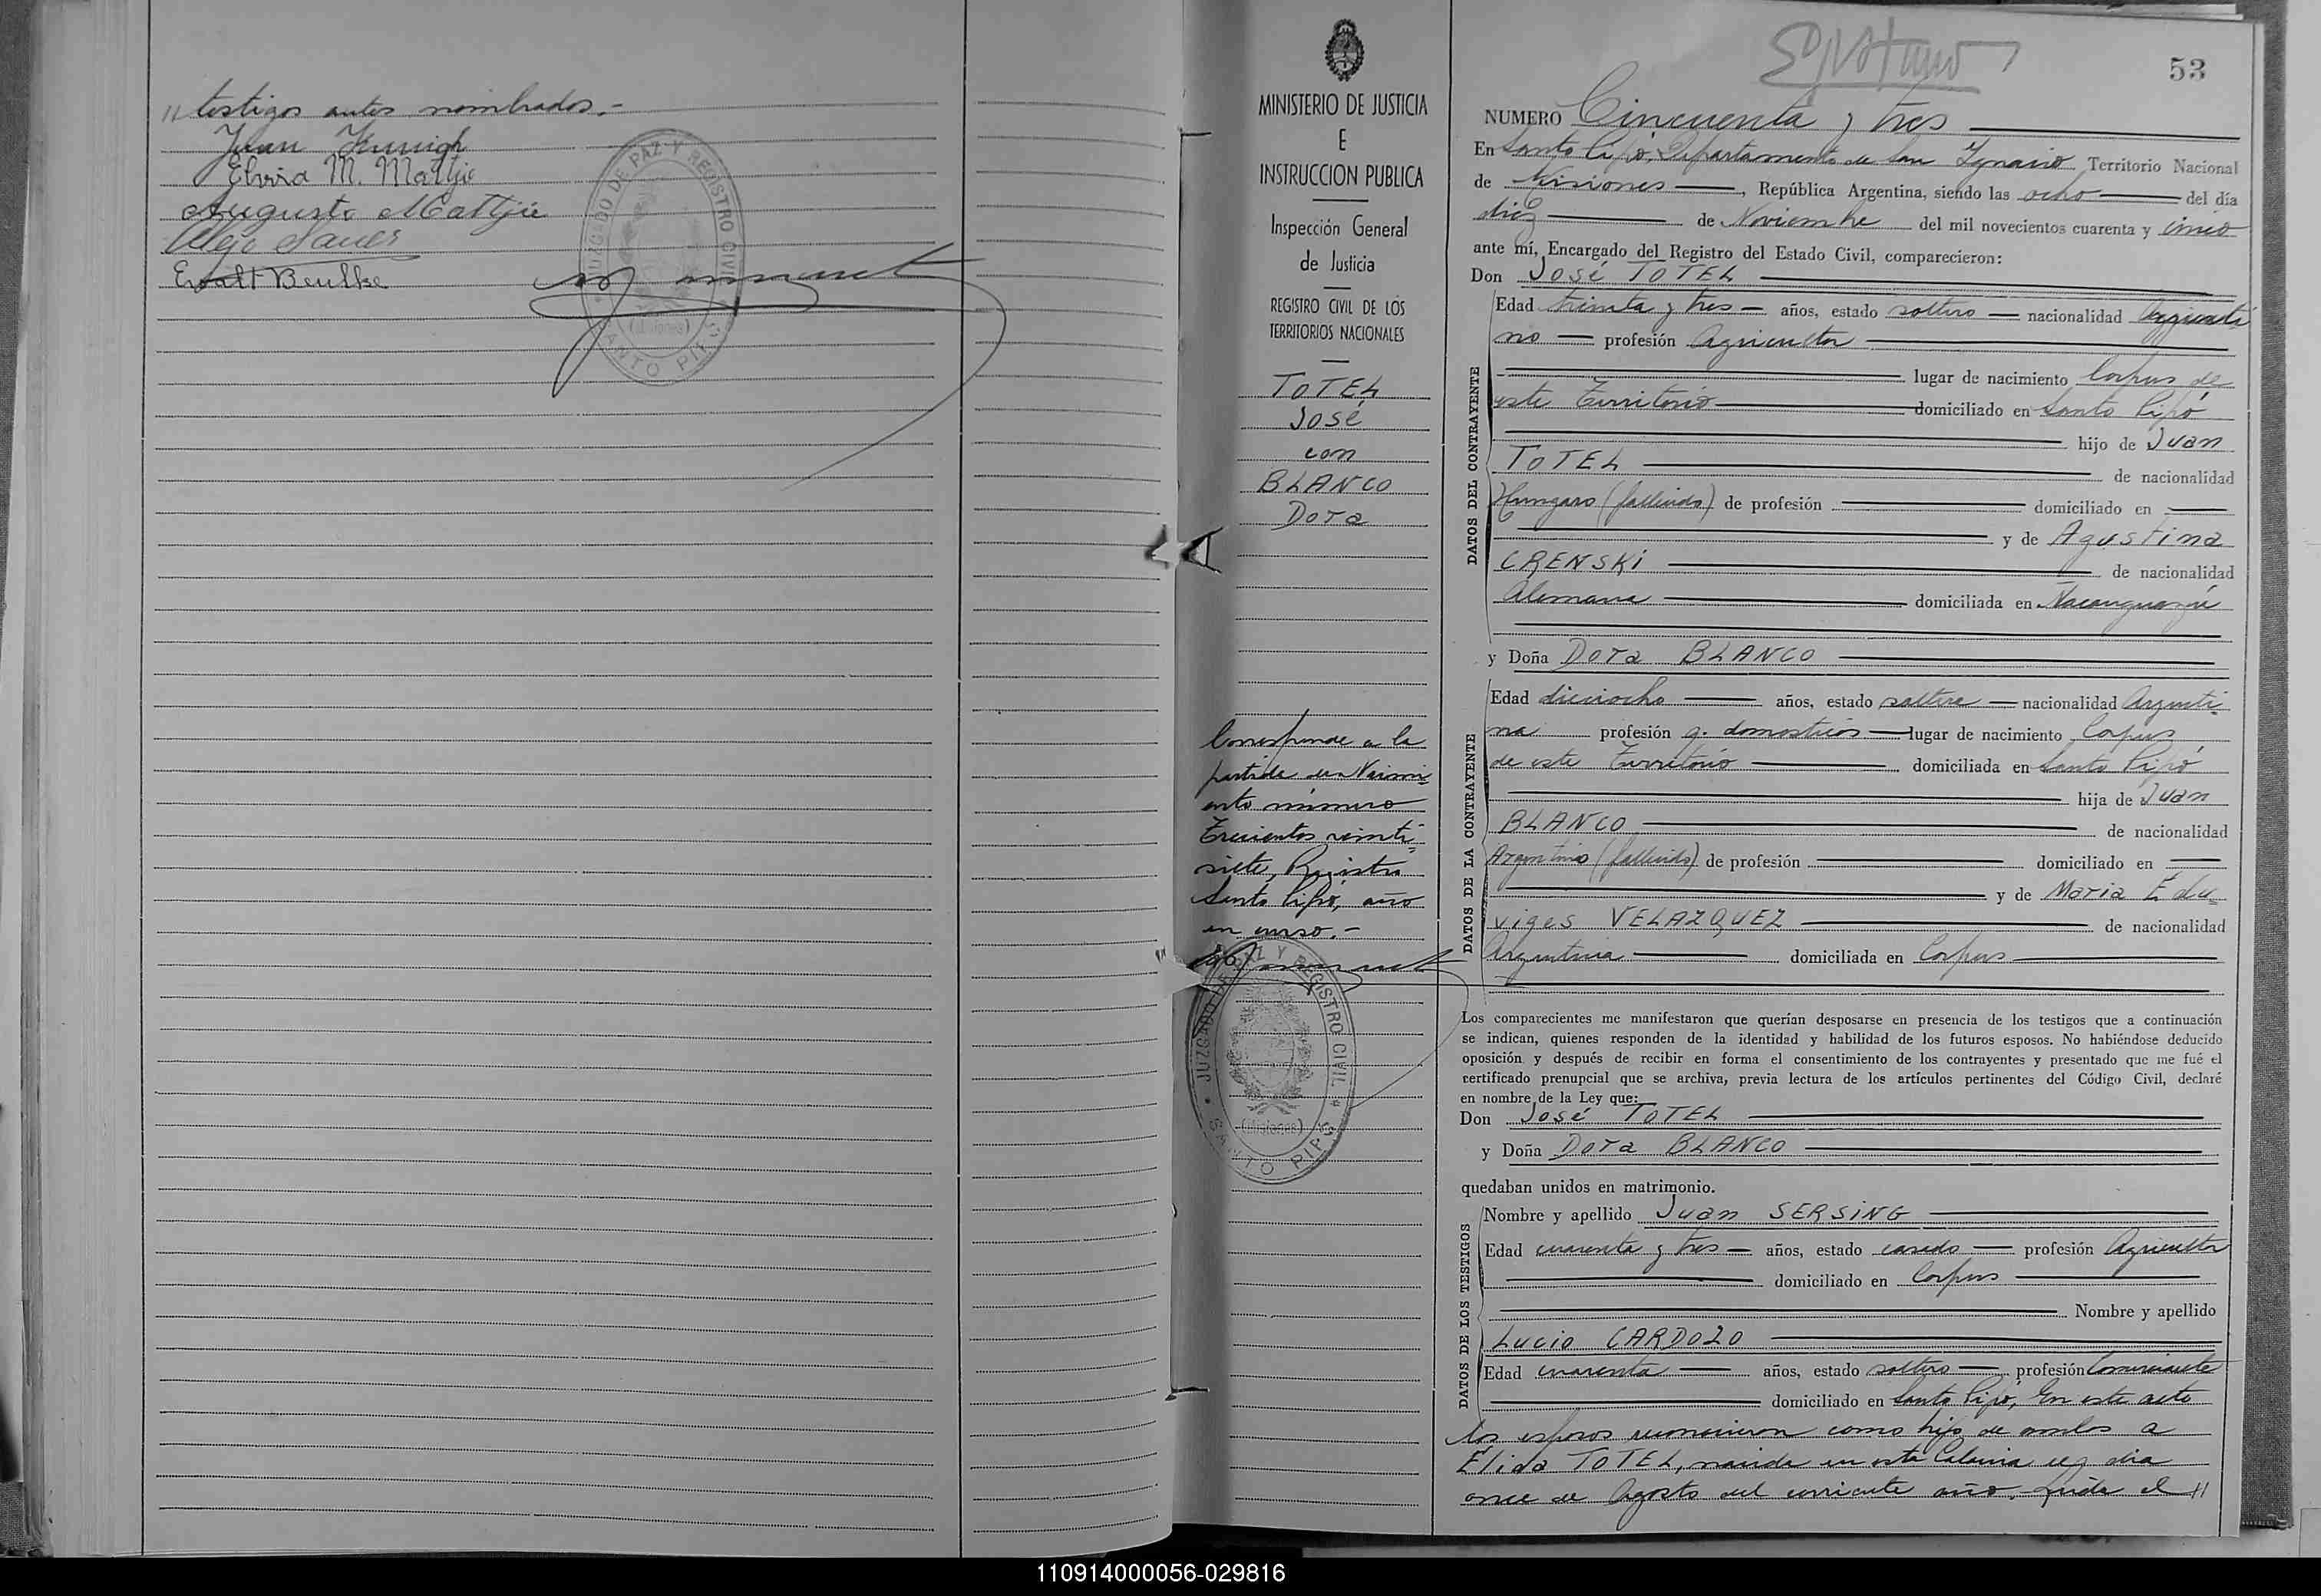 // testigos antes nombrados.-
Juan
Elvira M. Mattje
Augusto Mattjie
Ewalt Beulke
JUZGADO DE PAZ Y REGISTRO CIVIL
(Misiones)
SANTO PIPÓ
MINISTERIO DE JUSTICIA
E
INSTRUCCION PUBLICA
Inspección General
de Justicia
REGISTRO CIVIL DE LOS
TERRITORIOS NACIONALES
TOTEL
José
con
BLANCO
Dora
Corresponde a la
partida de Nacimi
ento número
Trecientos veinti
siete, Registro
Santo Pipó, año
en curso.-
JUZGADO DE PAZ Y REGISTRO CIVIL
(Misiones)
SANTO PIPÓ
53
NUMERO Cincuenta y tres
En Santo Pipó, Departamento de San Ignacio Territorio Nacional
de Misiones, República Argentina, siendo las ocho del día
diez de Noviembre del mil novecientos cuarenta y cinco
ante mí, Encargado del Registro del Estado Civil, comparecieron:
Don José TOTEL
DATOS DEL CONTRAYENTE
Edad treinta y tres años, estado soltero nacionalidad Argenti
no profesión Agricultor
lugar de nacimiento Corpus de
este Territorio domiciliado en Santo Pipó
hijo de Juan
TOTEL de nacionalidad
Húngaro (fallecido) de profesión domiciliado en
y de Agustina
CRENSKI de nacionalidad
Alemana domiciliada en Ñacanguazú
y Doña Dora BLANCO
DATOS DE LA CONTRAYENTE
Edad dieciocho años, estado soltera nacionalidad Argenti
na profesión q. domésticos lugar de nacimiento Corpus
de este Territorio domiciliada en Santo Pipó
hija de Juan
BLANCO de nacionalidad
Argentino (fallecido) de profesión domiciliado en
y de Maria Edu
viges VELAZQUEZ de nacionalidad
Argentina domiciliada en Corpus
Los comparecientes me manifestaron que querían desposarse en presencia de los testigos que a continuación
se indican, quienes responden de la identidad y habilidad de los futuros esposos. No habiéndose deducido
oposición y después de recibir en forma el consentimiento de los contrayentes y presentado que me fué el
certificado prenupcial que se archiva, previa lectura de los artículos pertinentes del Código Civil, declaré
en nombre de la Ley que:
Don José TOTEL
y Doña Dora BLANCO
quedaban unidos en matrimonio.
DATOS DE LOS TESTIGOS
Nombre y apellido Juan SERSING
Edad cuarenta y tres años, estado casado profesión Agricultor
domiciliado en Corpus
Nombre y apellido
Lucio CARDOZO
Edad cuarenta años, estado soltero profesión Comerciante
domiciliado en Santo Pipó, En este acto
los esposos reconocieron como hija de ambos a
Élida TOTEL, nacida en esta Colonia el dia
once de Agosto del corriente año. Leída el //
110914000056-029816